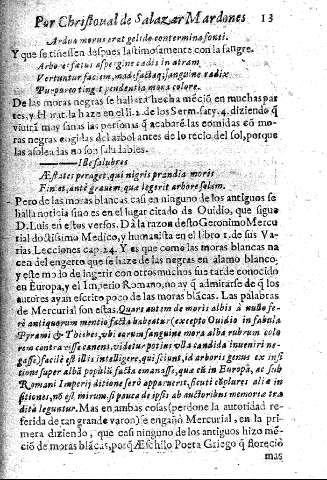 Por Christoual de Salazar Mardones 13
Ardua morus erat gelido contermina fonti.
Y que se tiñessen despues lastimosamente con la sangre.
Arborei fœtus aspergine cædis in atram
Vertuntur faciem, madefactaq; sanguine radix
Purpureo tingit pendentia mora colore.
De las moras negras se hallarà hecha mēciō en muchas par
tes, y Horat. la haze en el li. 2. de los Serm. saty. 4. diziendo q̄
viuirà muy sanas las personas q̄ acabarē las comidas cō mo
ras negras cogidas del arbol antes de lo recio del sol, porque
las asoleadas no son saludables.
Ille salubres
Æstates peraget, qui nigris prandia moris
Finiet, antè grauem quæ legerit arbore solem.
Pero de las moras blancas casi en ninguno de los antiguos se
halla noticia sino es en el lugar citado de Ouidio, que sigue
D. Luis en estos versos. Dà la razon desto Geronimo Mercu
rial doctissimo Medico, y humanista en el libro 1. de sus Va
rias Lecciones cap. 24. Y es que como las moras blancas na
cen del engerto que se haze de las negras en alamo blanco,
y este modo de ingerir con otros muchos fue tarde conocido
en Europa, y el Imperio Romano, no ay q̄ admirarse de q̄ los
autores ayan escrito poco de las moras blācas. Las palabras
de Mercurial son estas. Quare autem de moris albis à nullo fe-
rè antiquorum mentio facta habeatur (excepto Ouidio in fabula
Pyrami & Thisbes, vbi earum sanguine mora alba rubrum colo
rem contraxisse canens, videtur potius olla candida inueniri ne-
gasse) facilè est illis intelligere, qui sciunt, id arboris genus ex insi
tione super albā populū facta emanasse, quæ cū in Europā, ac sub
Romani Imperij ditione serò apparuerit, sicuti cōplures aliæ in
sitiones, nō est mirum, si pauca de ipsis ab auctoribus memoria tra
dita leguntur. Mas en ambas cosas (perdone la autoridad re-
ferida de tan grande varon) se engañò Mercurial, en la pri
mera diziendo, que casi ninguno de los antiguos hizo mē-
cio de moras blācas, porq̄ Æschilo Poeta Griego q̄ florecio
mas